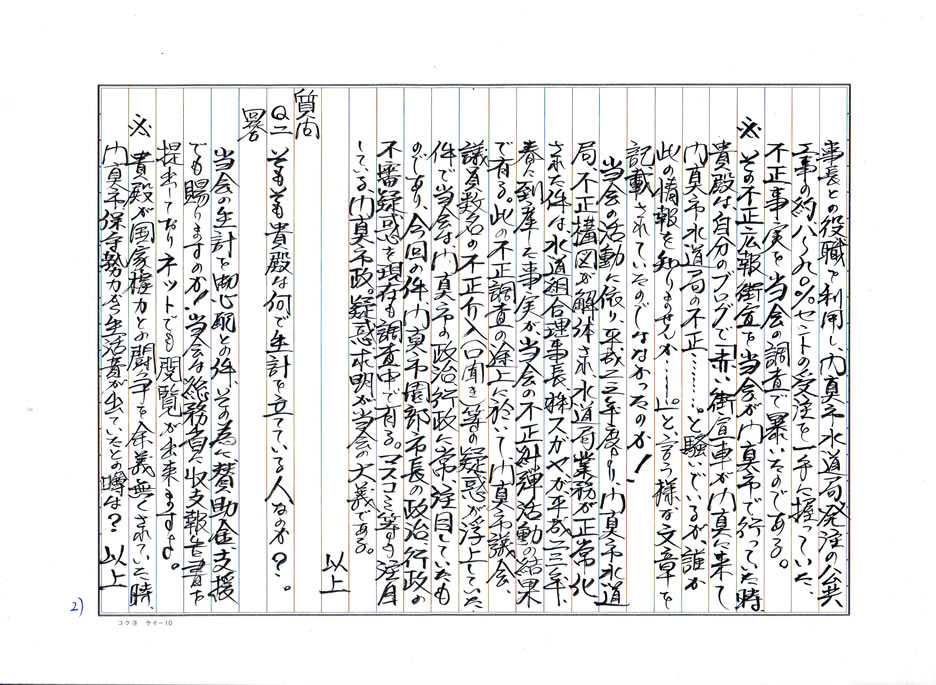 事長との役職を利用し門真市水道局発注の公共
工事の約八~九〇%セントの受注を一手に握っていた、
不正事実を当会の調査で暴いたのである。
※その不正広報街宣を当会が門真市で行っていた時
貴殿は自分のブログで「赤い街宣車が門真に来て
門真市水道局の不正………。と騒いでいるが、誰か
此の情報を知りませんか――。」と言う様な文章を
記載されていたのじゃなかったのか!
当会の活動に依り、平成二三年度より門真市水道
局、不正構図が解体され水道局業務が正常化
された件は水道組合理事長㈱スガヤが平成二三年、
春に倒産した事実が当会の不正糾弾活動の結果
で有る。此の不正調査の途上に於いて、門真市議会、
議員数名の不正介入(口聞き)等の疑惑が浮上していた
件で当会は門真市の政治行政に常注目していたも
のであり、今回の件門真市園部市長の政治行政の
不審疑惑を現在も調査中で有る。マスコミ等も注目
している、門真市政。疑惑求明が当会の大義である。
以上
質問
Q二 そもそも貴殿は何で生計を立てている人なのか?。
回答
当会の生計を御心配との件、その為に賛助金、支援
でも賜りますのか!当会は総務省に収支報告書を
提出しておりネットでも閲覧が出来ますよ。
※貴殿が国家権力との闘争を余義無くされていた時、
門真市保守勢力が生活費が出ていたとの噂は? 以上
2)
コクヨ ケイ-10